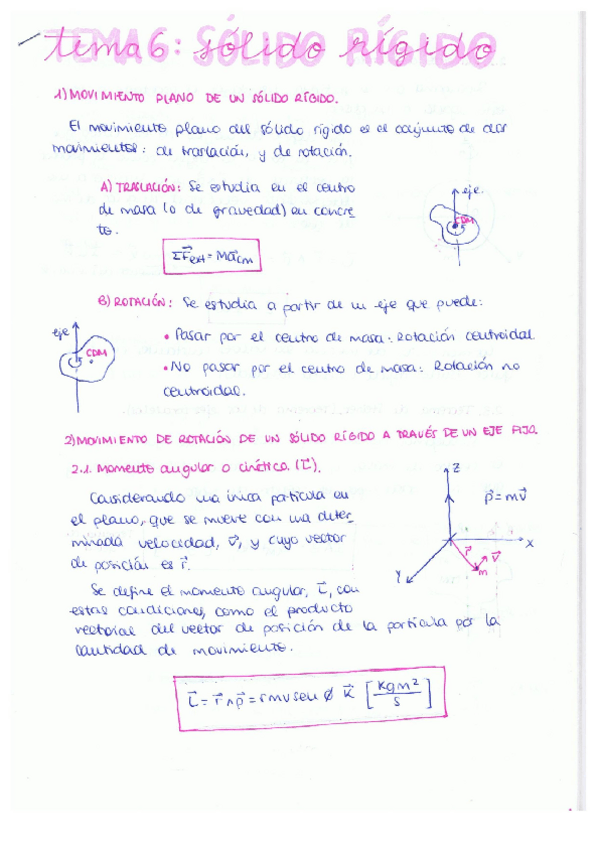 tema 6: sólido rígido
1) MOVIMIENTO PLANO DE UN SÓLIDO RÍGIDO.
El movimiento plano del sólido rígido es el conjunto de dos
movimientos: de traslación, y de rotación.
A) TRASLACIÓN: Se estudia en el centro
de masa (o de gravedad) en concre
to.
eje.
CDM
ΣF⃗ext = Ma⃗cm
B) ROTACIÓN: Se estudia a partir de un eje que puede:
eje
CDM
• Pasar por el centro de masa: Rotación centroidal
• No pasar por el centro de masa: Rotación no
centroidal.
2) MOVIMIENTO DE ROTACIÓN DE UN SÓLIDO RÍGIDO A TRAVÉS DE UN EJE FIJO.
2.1. Momento angular o cinético. (L⃗).
Considerando una única partícula en
el plano, que se mueve con una deter
minada velocidad, v⃗, y cuyo vector
de posición es r⃗.
Z
p⃗ = mv⃗
X
Y
r⃗
v⃗
m
Se define el momento angular, L⃗, con
estas condiciones, como el producto
vectorial del vector de posición de la partícula por la
cantidad de movimiento.
L⃗ = r⃗ ∧ p⃗ = rmv sen ϕ k⃗ [kg m²/s]